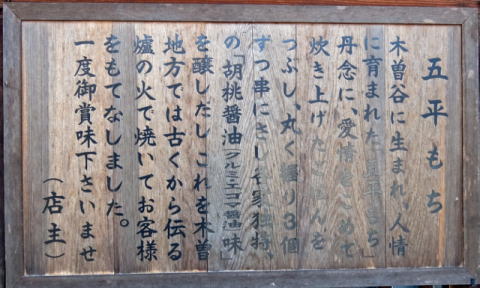 五平もち
木曽谷に生まれ、人情
に育まれた「五平もち」
丹念に、愛情をこめて
炊き上げたごはんを
つぶし、丸く握り3個
ずつ串にさし各家独特、
の「胡桃醤油(クルミ・エゴマ醤油)味」
を醸しだし これを木曽
地方では古くから伝る
爐の火で焼いてお客様
をもてなしました。
一度御賞味下さいませ
(店主)